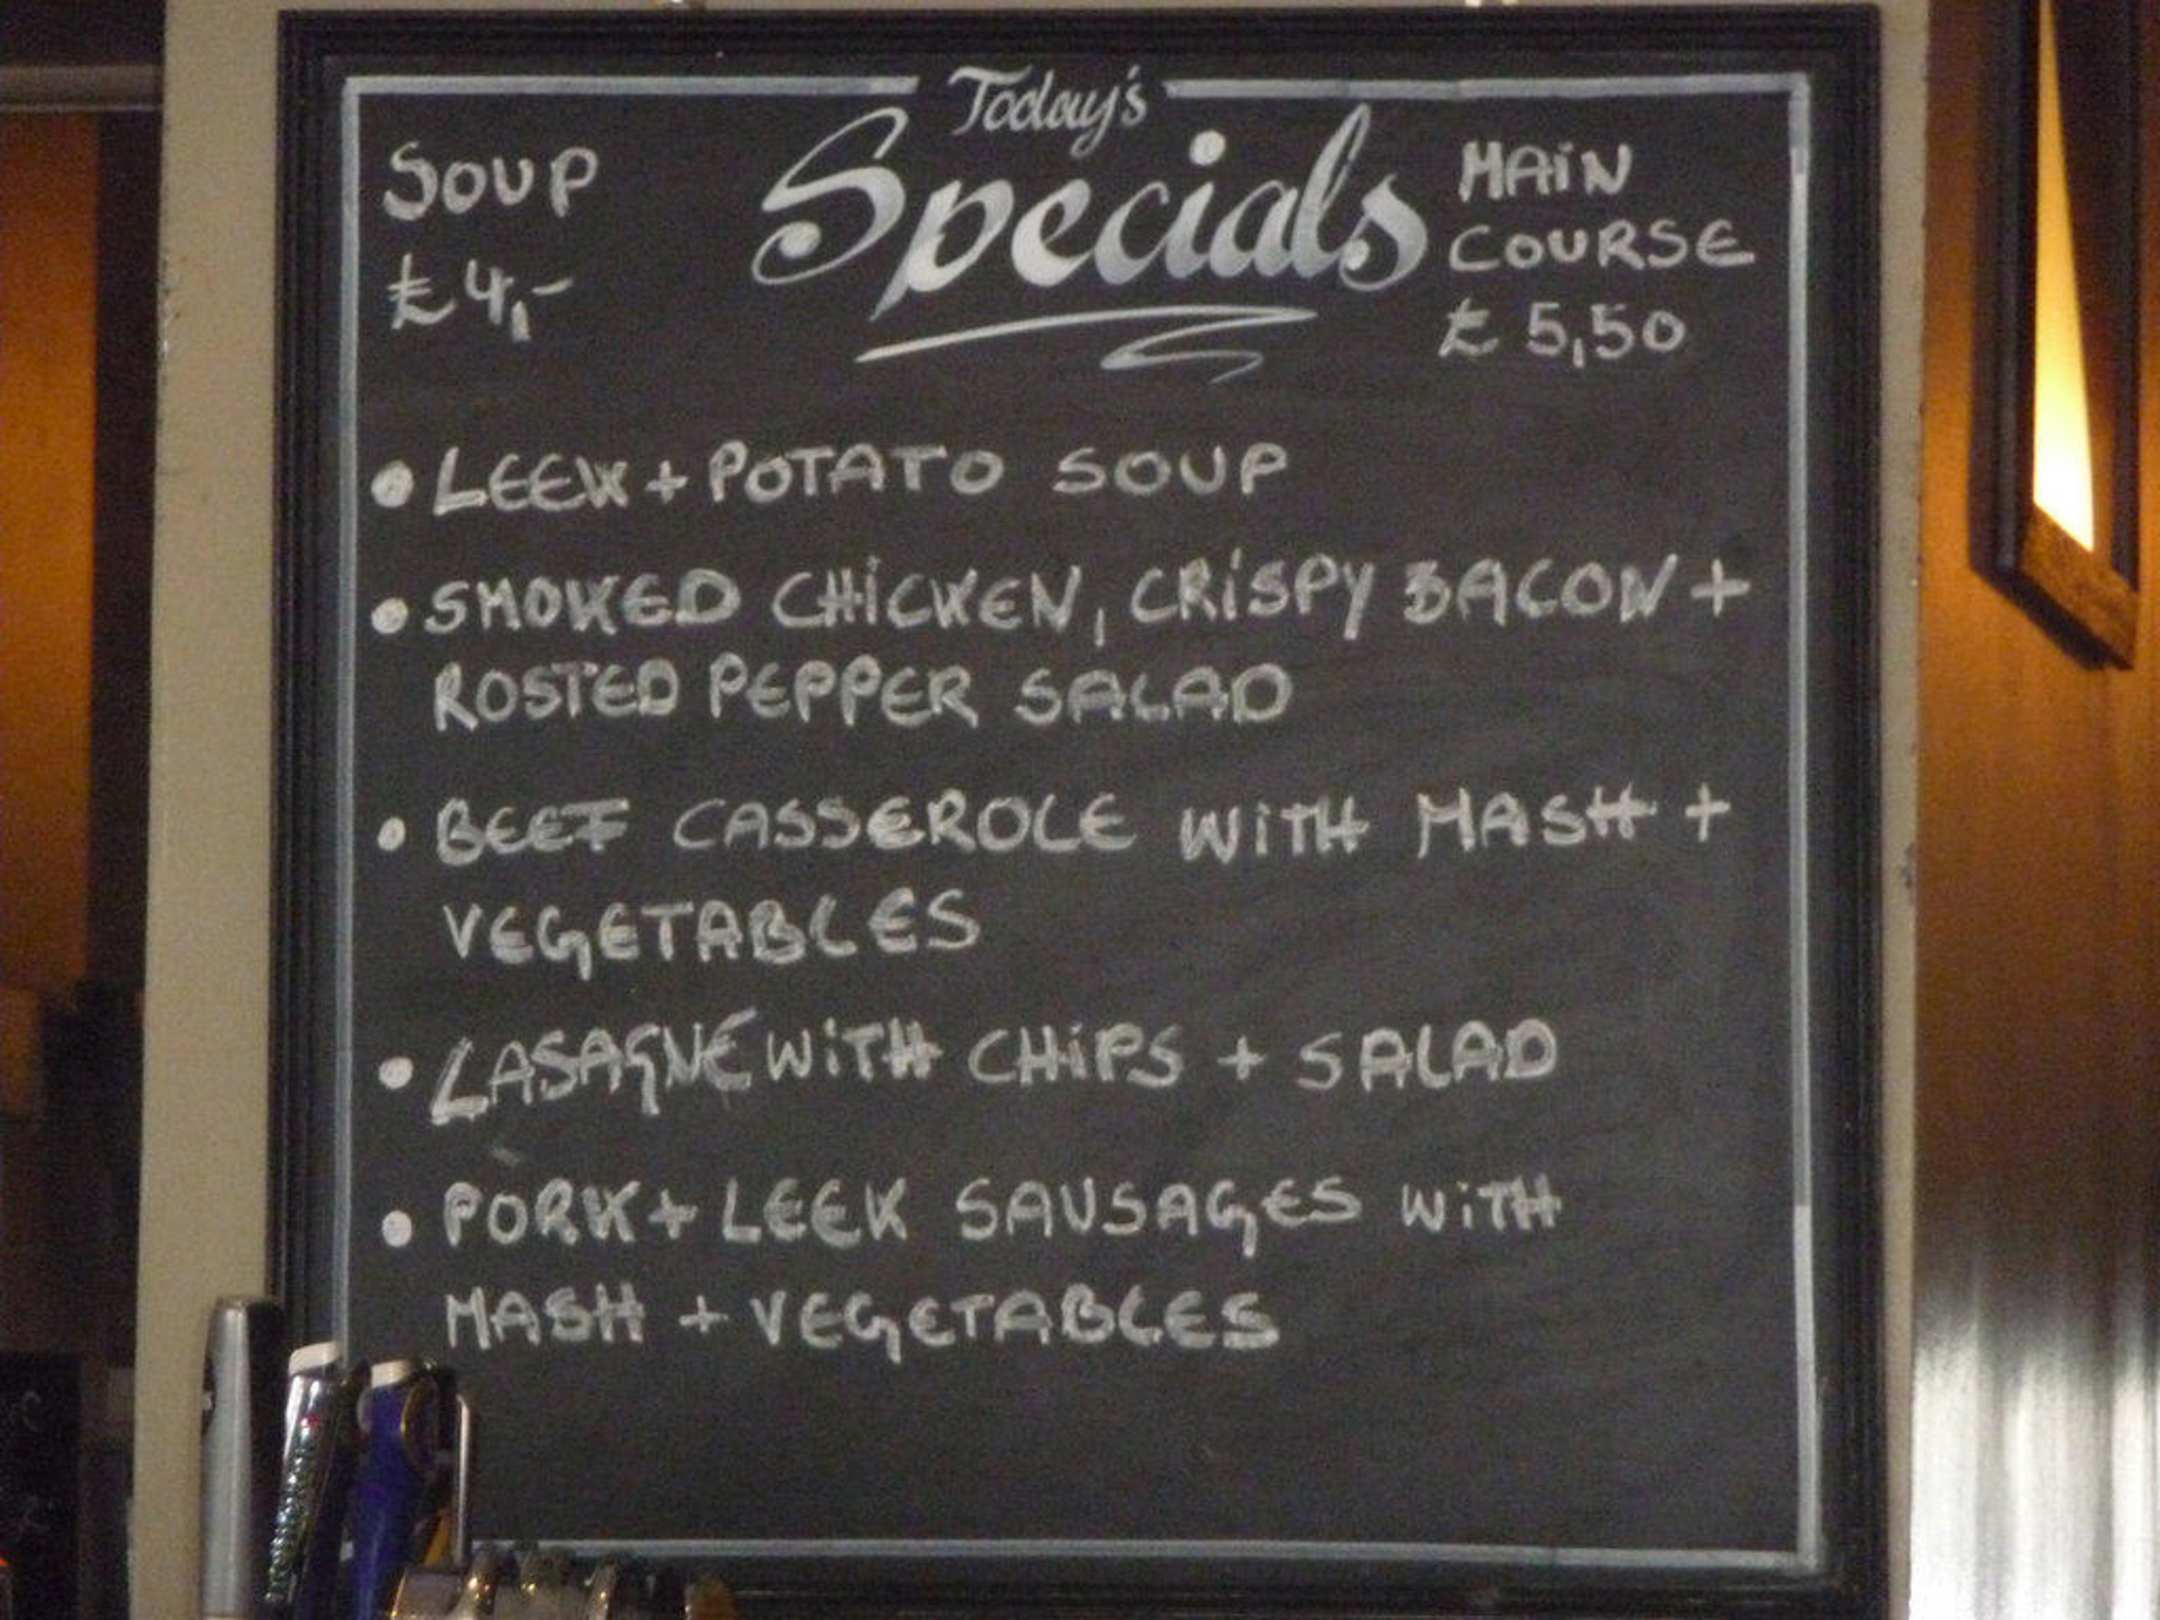 Today's
Specials
SOUP
£4,-
MAiN
COURSE
£ 5,50
• LEEK + POTATO SOUP
• SMOKED CHiCKEN, CRiSPY BACON +
ROSTED PEPPER SALAD
• BEEF CASSEROLE WiTH MASH +
VEGETABLES
• LASAGNE WiTH CHiPS + SALAD
• PORK + LEEK SAUSAGES WiTH
MASH + VEGETABLES